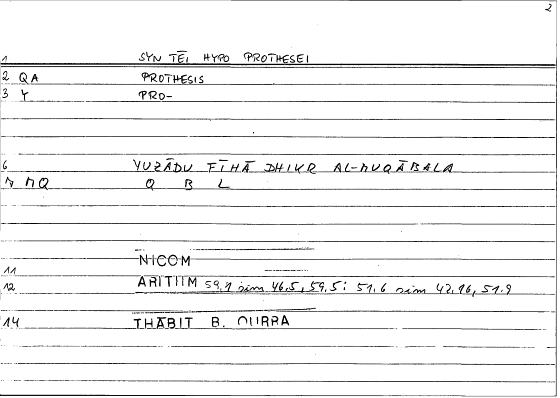 2
1 SYN TĒI HYPO PROTHESEI
2 QA PROTHESIS
3 Y PRO-
6 YUZĀDU FĪHĀ DHIKR AL-MUQĀBALA
MQ Q B L
NICOM
11
12 ARITIIM 59.1 sim 46.5, 59.5; 51.6 sim 42.16, 51.9
14 THĀBIT B. QURRA